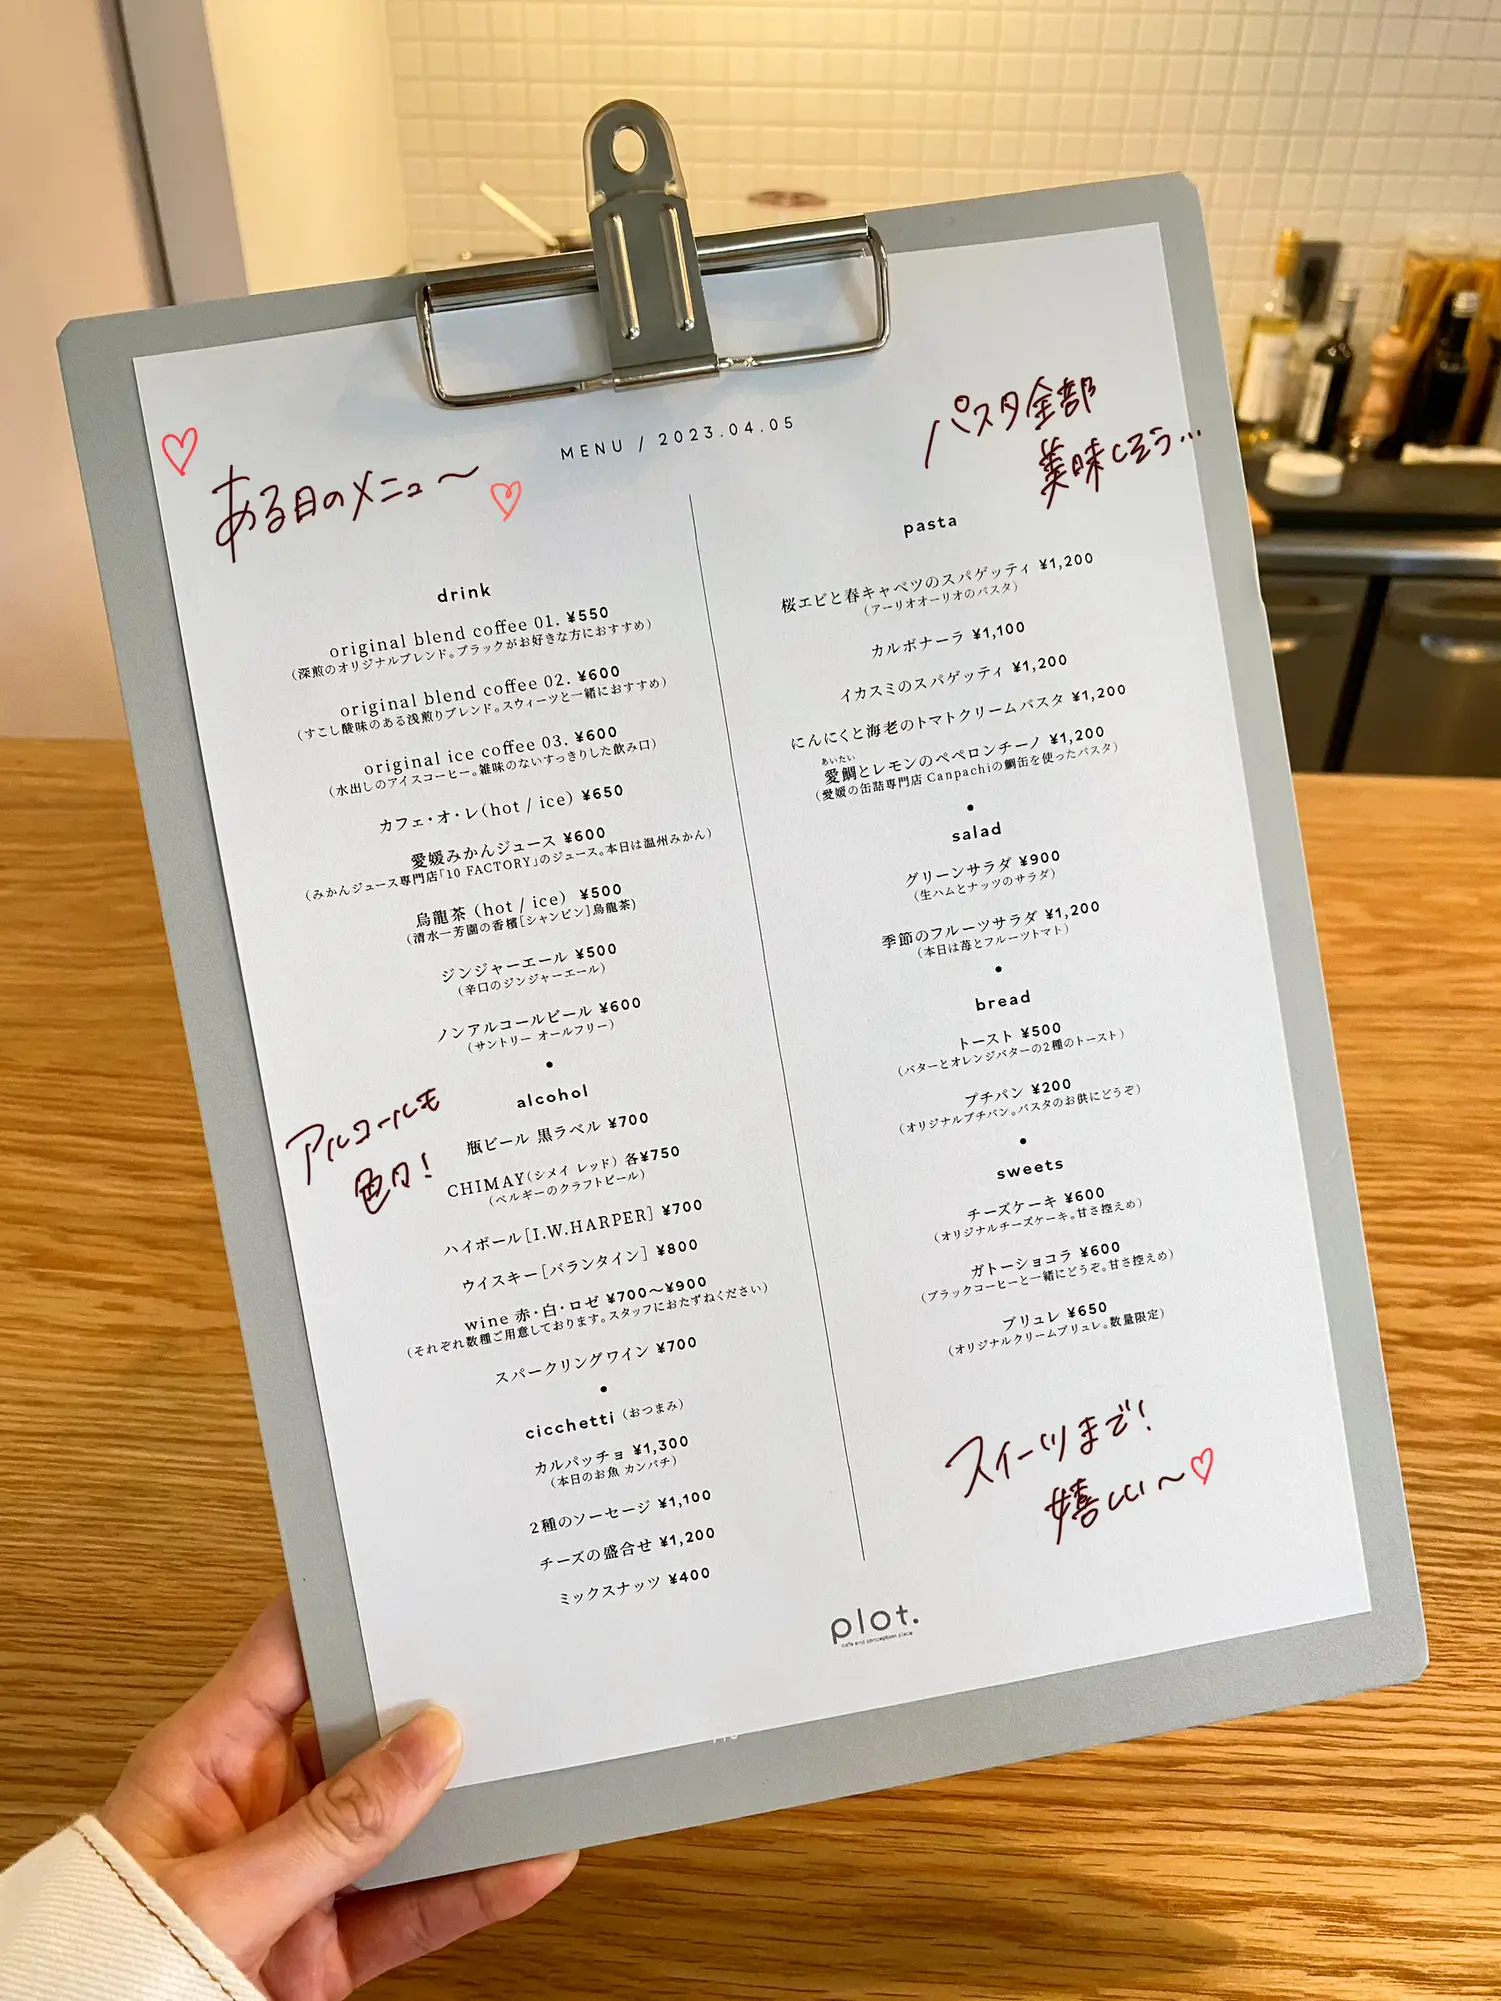 MENU / 2023.04.05
ある日のメニュ〜
drink
original blend coffee 01. ¥550
（深煎のオリジナルブレンド。ブラックがお好きな方におすすめ）
original blend coffee 02. ¥600
（すこし酸味のある浅煎りブレンド。スウィーツと一緒におすすめ）
original ice coffee 03. ¥600
（水出しのアイスコーヒー。雑味のないすっきりした飲み口）
カフェ・オ・レ（hot / ice） ¥650
愛媛みかんジュース ¥600
（みかんジュース専門店「10 FACTORY」のジュース。本日は温州みかん）
烏龍茶（hot / ice） ¥500
（清水一芳園の香檳［シャンピン］烏龍茶）
ジンジャーエール ¥500
（辛口のジンジャーエール）
ノンアルコールビール ¥600
（サントリー オールフリー）
アルコールも
色々！
alcohol
瓶ビール 黒ラベル ¥700
CHIMAY（シメイ レッド） 各¥750
（ベルギーのクラフトビール）
ハイボール［I.W.HARPER］ ¥700
ウイスキー［バランタイン］ ¥800
wine 赤・白・ロゼ ¥700〜¥900
（それぞれ数種ご用意しております。スタッフにおたずねください）
スパークリングワイン ¥700
cicchetti（おつまみ）
カルパッチョ ¥1,300
（本日のお魚 カンパチ）
2種のソーセージ ¥1,100
チーズの盛合せ ¥1,200
ミックスナッツ ¥400
パスタ全部
美味しそう...
pasta
桜エビと春キャベツのスパゲッティ ¥1,200
（アーリオオーリオのパスタ）
カルボナーラ ¥1,100
イカスミのスパゲッティ ¥1,200
にんにくと海老のトマトクリームパスタ ¥1,200
あいたい
愛鯛とレモンのペペロンチーノ ¥1,200
（愛媛の缶詰専門店 Canpachiの鯛缶を使ったパスタ）
salad
グリーンサラダ ¥900
（生ハムとナッツのサラダ）
季節のフルーツサラダ ¥1,200
（本日は苺とフルーツトマト）
bread
トースト ¥500
（バターとオレンジバターの2種のトースト）
プチパン ¥200
（オリジナルプチパン。パスタのお供にどうぞ）
sweets
チーズケーキ ¥600
（オリジナルチーズケーキ。甘さ控えめ）
ガトーショコラ ¥600
（ブラックコーヒーと一緒にどうぞ。甘さ控えめ）
ブリュレ ¥650
（オリジナルクリームブリュレ。数量限定）
スイーツまで！
嬉しい〜
plot.
cafe and conception place